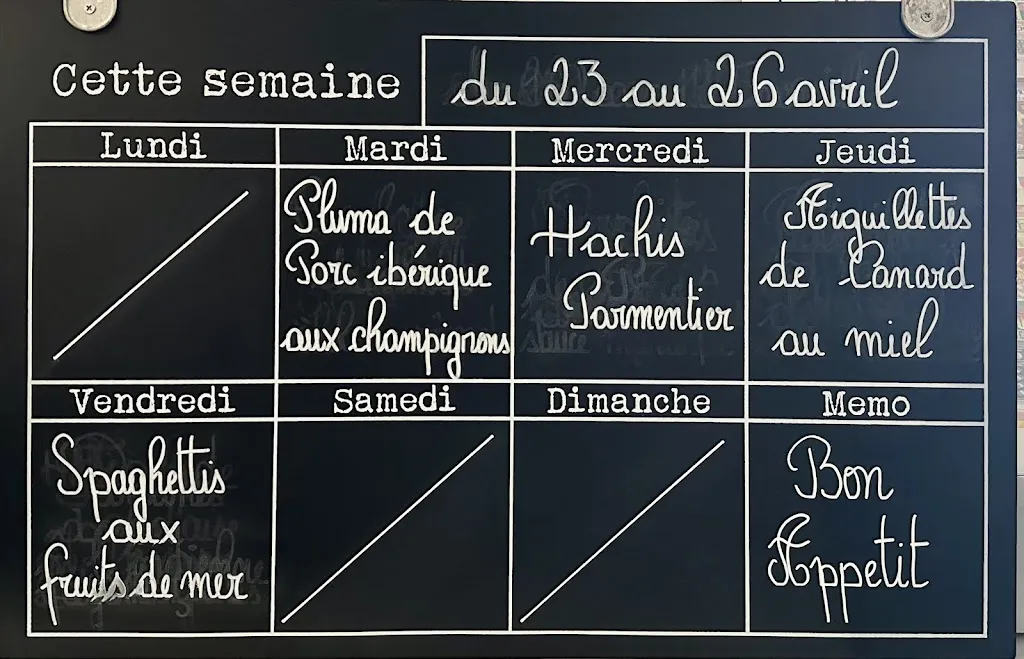 Cette semaine du 23 au 26 avril
Lundi
Mardi
Mercredi
Jeudi
Pluma de
Porc ibérique
aux champignons
Hachis
Parmentier
Aiguillettes
de Canard
au miel
Vendredi
Samedi
Dimanche
Memo
Spaghettis
aux
fruits de mer
Bon
Appetit